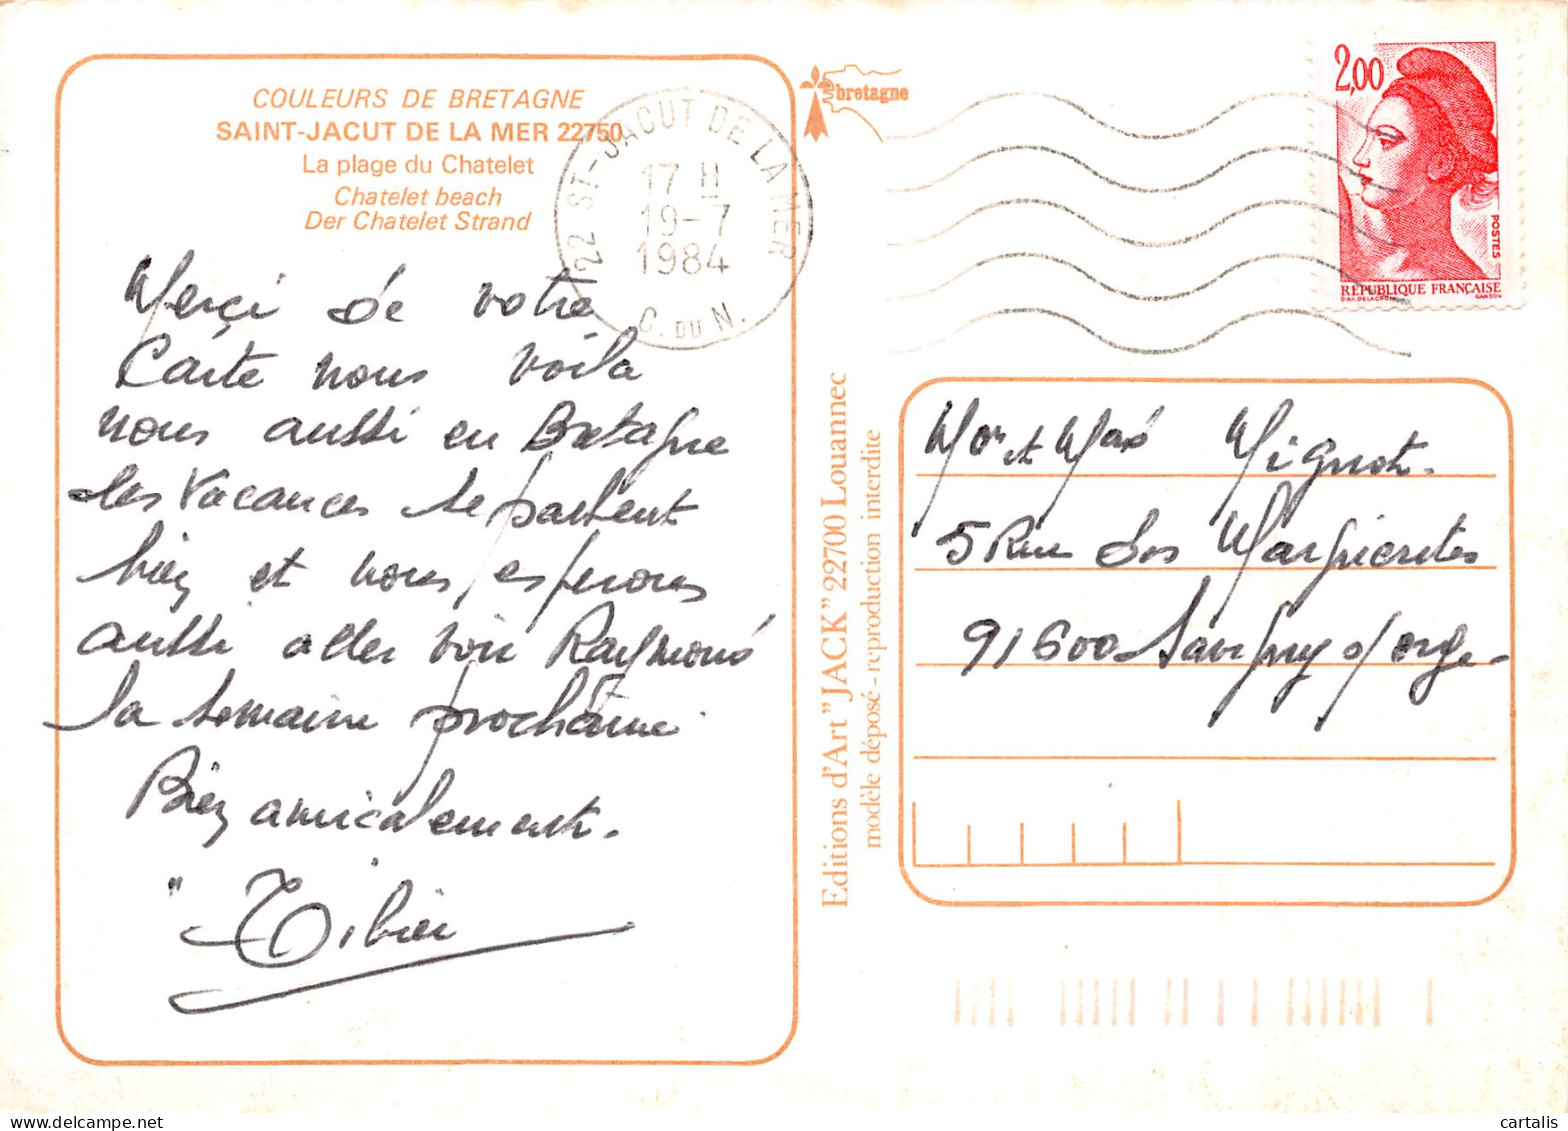 COULEURS DE BRETAGNE
SAINT-JACUT DE LA MER 22750
La plage du Chatelet
Chatelet beach
Der Chatelet Strand
Merçi de votre
Carte nous voila
nous aussi en Bretagne
les Vacances se passent
bien et nous esperons
aussi aller voir Raymond
la semaine prochaine.
Bien amicalement.
Tibier
22 ST-JACUT DE LA MER
17 H
19-7
1984
C. DU N.
bretagne
2,00
POSTES
REPUBLIQUE FRANÇAISE
D'AP. DELACROIX GANDON
Editions d'Art "JACK" 22700 Louannec
modèle déposé - reproduction interdite
Mr et Me Mignot.
5 Rue des Marguerites
91600 Savigny s/ orge-
cartalis